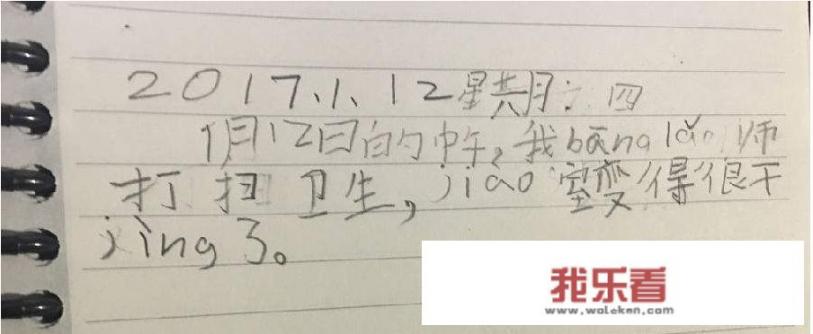 2017.1.12星期六四
1月12日的中午,我bāng lǎo师
打扫卫生,jiào室变得很干
jìng了。
我乐看
www.woleken.com